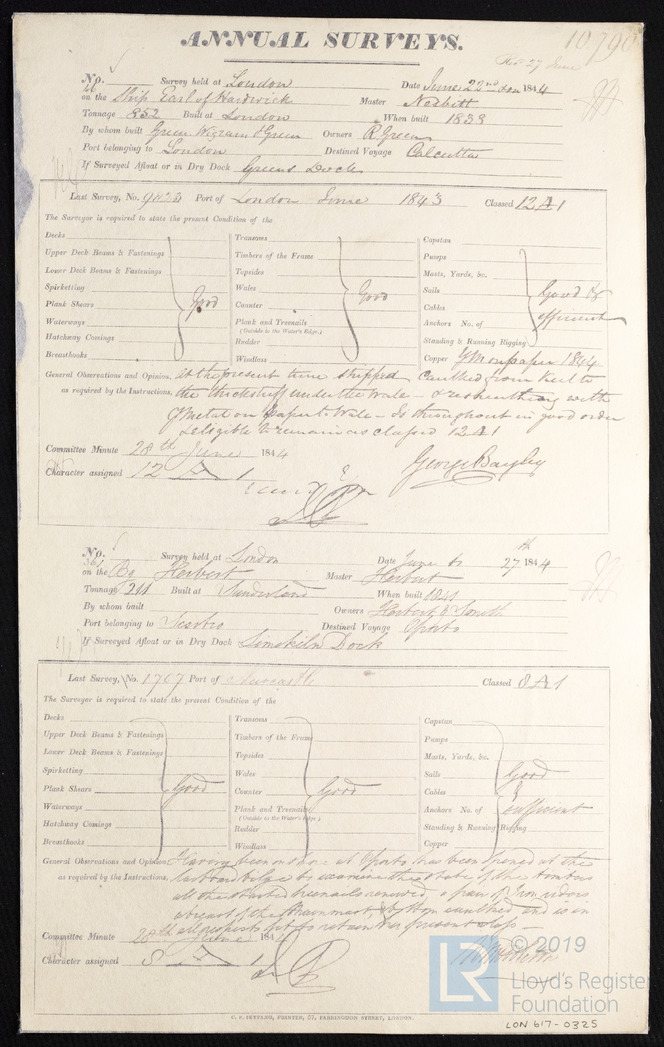 10,790
ANNUAL SURVEYS.
Rec 27 June
No. Survey held at London Date June 22nd 1844
on the Ship Earl of Hardwick Master Nesbitt
Tonnage 852 Built at London When built 1838
By whom built Green Wigram & Green Owners R Green
Port belonging to London Destined Voyage Calcutta
If Surveyed Afloat or in Dry Dock Greens Dock
Last Survey, No. Port of London June 1843 Classed 12 A 1
The Surveyor is required to state the present Condition of the
Decks
Upper Deck Beams & Fastenings
Lower Deck Beams & Fastenings
Spirketting
Plank Shears Good
Waterways
Hatchway Comings
Breasthooks
Transoms
Timbers of the Frame
Topsides
Wales
Counter Good
Plank and Treenails
(Outside to the Water's Edge.)
Rudder
Windlass
Capstan
Pumps
Masts, Yards, &c.
Sails Good &
Cables
Anchors No. of efficient
Standing & Running Rigging
Copper YM on paper 1844
General Observations and Opinion, at the present time shipped Caulked from Keel to
as required by the Instructions, the thickstuff under the Wale - & resheathing with
YMetal on paper to Wale - Is throughout in good order
& eligible to remain as classed 12 A 1
Committee Minute 28th June 1844
Character assigned 12 A 1 George Bayley
No. Survey held at London Date June 27th 1844
on the Bg Herbert Master Herbert
Tonnage 211 Built at Sunderland When built 1841
By whom built Owners Herbert & Smith
Port belonging to Destined Voyage Oporto
If Surveyed Afloat or in Dry Dock Limekiln Dock
Last Survey, No. 1767 Port of Newcastle Classed 8 A 1
The Surveyor is required to state the present Condition of the
Decks
Upper Deck Beams & Fastenings
Lower Deck Beams & Fastenings
Spirketting
Plank Shears Good
Waterways
Hatchway Comings
Breasthooks
Transoms
Timbers of the Frame
Topsides
Wales
Counter Good
Plank and Treenails
(Outside to the Water's Edge.)
Rudder
Windlass
Capstan
Pumps
Masts, Yards, &c.
Sails Good
Cables &
Anchors No. of efficient
Standing & Running Rigging
Copper
General Observations and Opinion, Having been on shore at Oporto has been opened at the
as required by the Instructions, larboard bilge to examine the state of the timbers
all the started treenails renewed, a pair of Iron riders
abreast of the Main mast, bottom caulked, and is in
all respects fit to retain her present class -
Committee Minute 28th June 1844
Character assigned 8 A 1
LR © 2019
Lloyd's Register
Foundation
C. F. SEYFANG, PRINTER, 57, FARRINGDON STREET, LONDON.
LON 617-0325